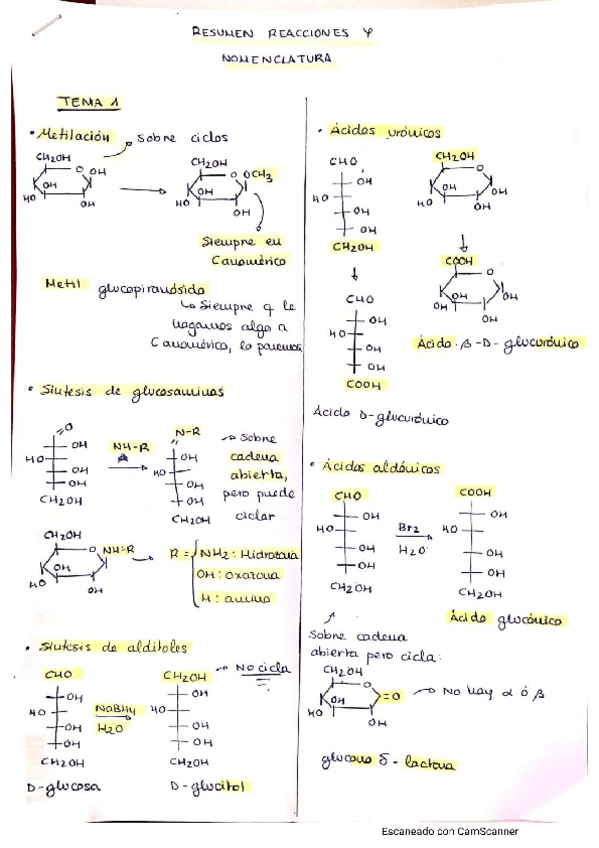 RESUMEN REACCIONES Y
NOMENCLATURA
TEMA 1
• Metilación sobre ciclos
CH2OH
O
OH
OH
HO
OH
CH2OH
O
OCH3
OH
HO
OH
Siempre en
C anomérico
Metil glucopiranósido
↳ Siempre q le
hagamos algo a
C anomérico, lo ponemos
• Síntesis de glucosaminas
O
OH
HO
OH
OH
CH2OH
NH-R
N-R
OH
HO
OH
OH
CH2OH
→ Sobre
cadena
abierta,
pero puede
ciclar
CH2OH
O
NH-R
OH
HO
OH
R = NH2: Hidrazona
OH: oxazona
H: amina
• Síntesis de alditoles
CHO
OH
HO
OH
OH
CH2OH
D-glucosa
NaBH4
H2O
CH2OH
OH
HO
OH
OH
CH2OH
D-glucitol
→ No cicla
• Ácidos urónicos
CHO
OH
HO
OH
OH
CH2OH
CHO
OH
HO
OH
OH
COOH
Ácido D-glucurónico
CH2OH
O
OH
OH
HO
OH
COOH
O
OH
OH
HO
OH
Ácido β-D-glucurónico
• Ácidos aldónicos
CHO
OH
HO
OH
OH
CH2OH
Br2
H2O
COOH
OH
HO
OH
OH
CH2OH
Ácido glucónico
Sobre cadena
abierta pero cicla:
CH2OH
O
=O
OH
HO
OH
→ No hay α ó β
glucono δ-lactona
Escaneado con CamScanner